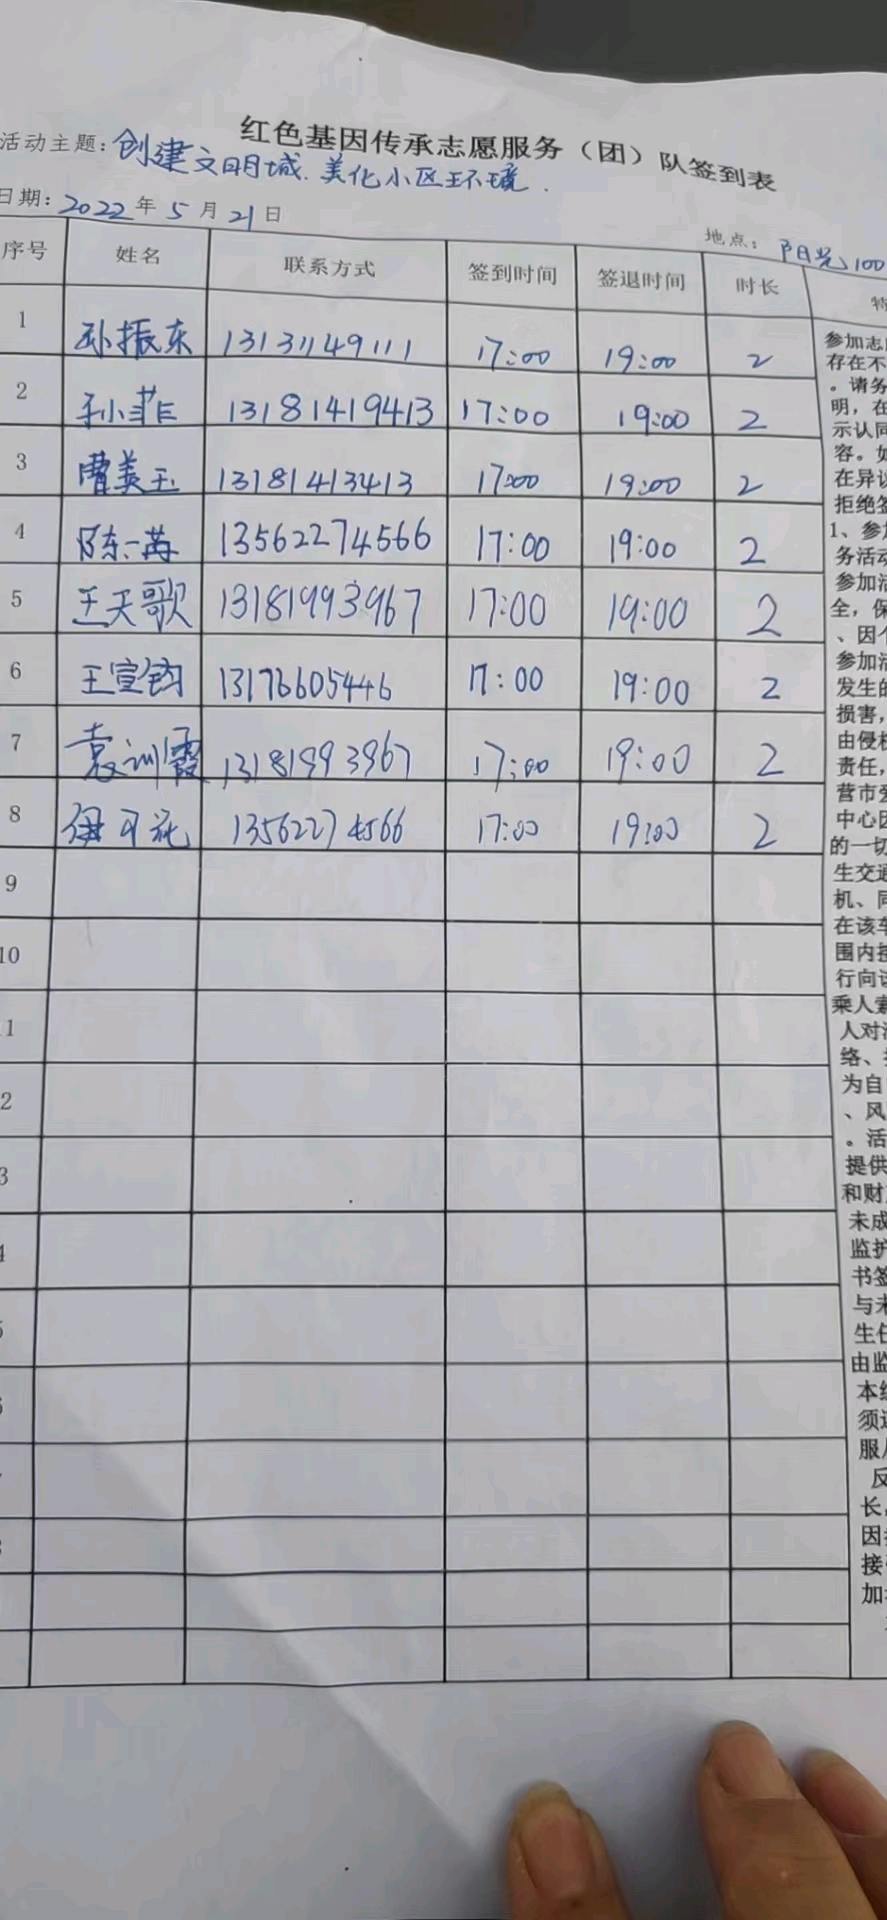 红色基因传承志愿服务（团）队签到表
活动主题：创建文明城.美化小区环境.
日期：2022年5月21日
地点：阳光100
序号 姓名 联系方式 签到时间 签退时间 时长
1 孙振东 13131149111 17:00 19:00 2
2 孙菲 13181419413 17:00 19:00 2
3 曹美玉 13181413413 17:00 19:00 2
4 陈一苒 13562274566 17:00 19:00 2
5 王天歌 13181993967 17:00 19:00 2
6 王宣钧 13176605446 17:00 19:00 2
7 袁训霞 13181993967 17:00 19:00 2
8 13562274566 17:00 19:00 2
9
10
特
参加志
存在不
。请务
明，在
示认同
容。如
在异议
拒绝签
1、参加
务活动
参加活
全，保
、因个
参加活
发生的
损害，
由侵权
责任，
营市爱
中心因
的一切
生交通
机、同
在该车
围内按
行向该
乘人
人对
络、
为自
、风
。活
提供
和财
未成
监护
书签
与未
生任
由监
本
须
服
反
长
因
接
加